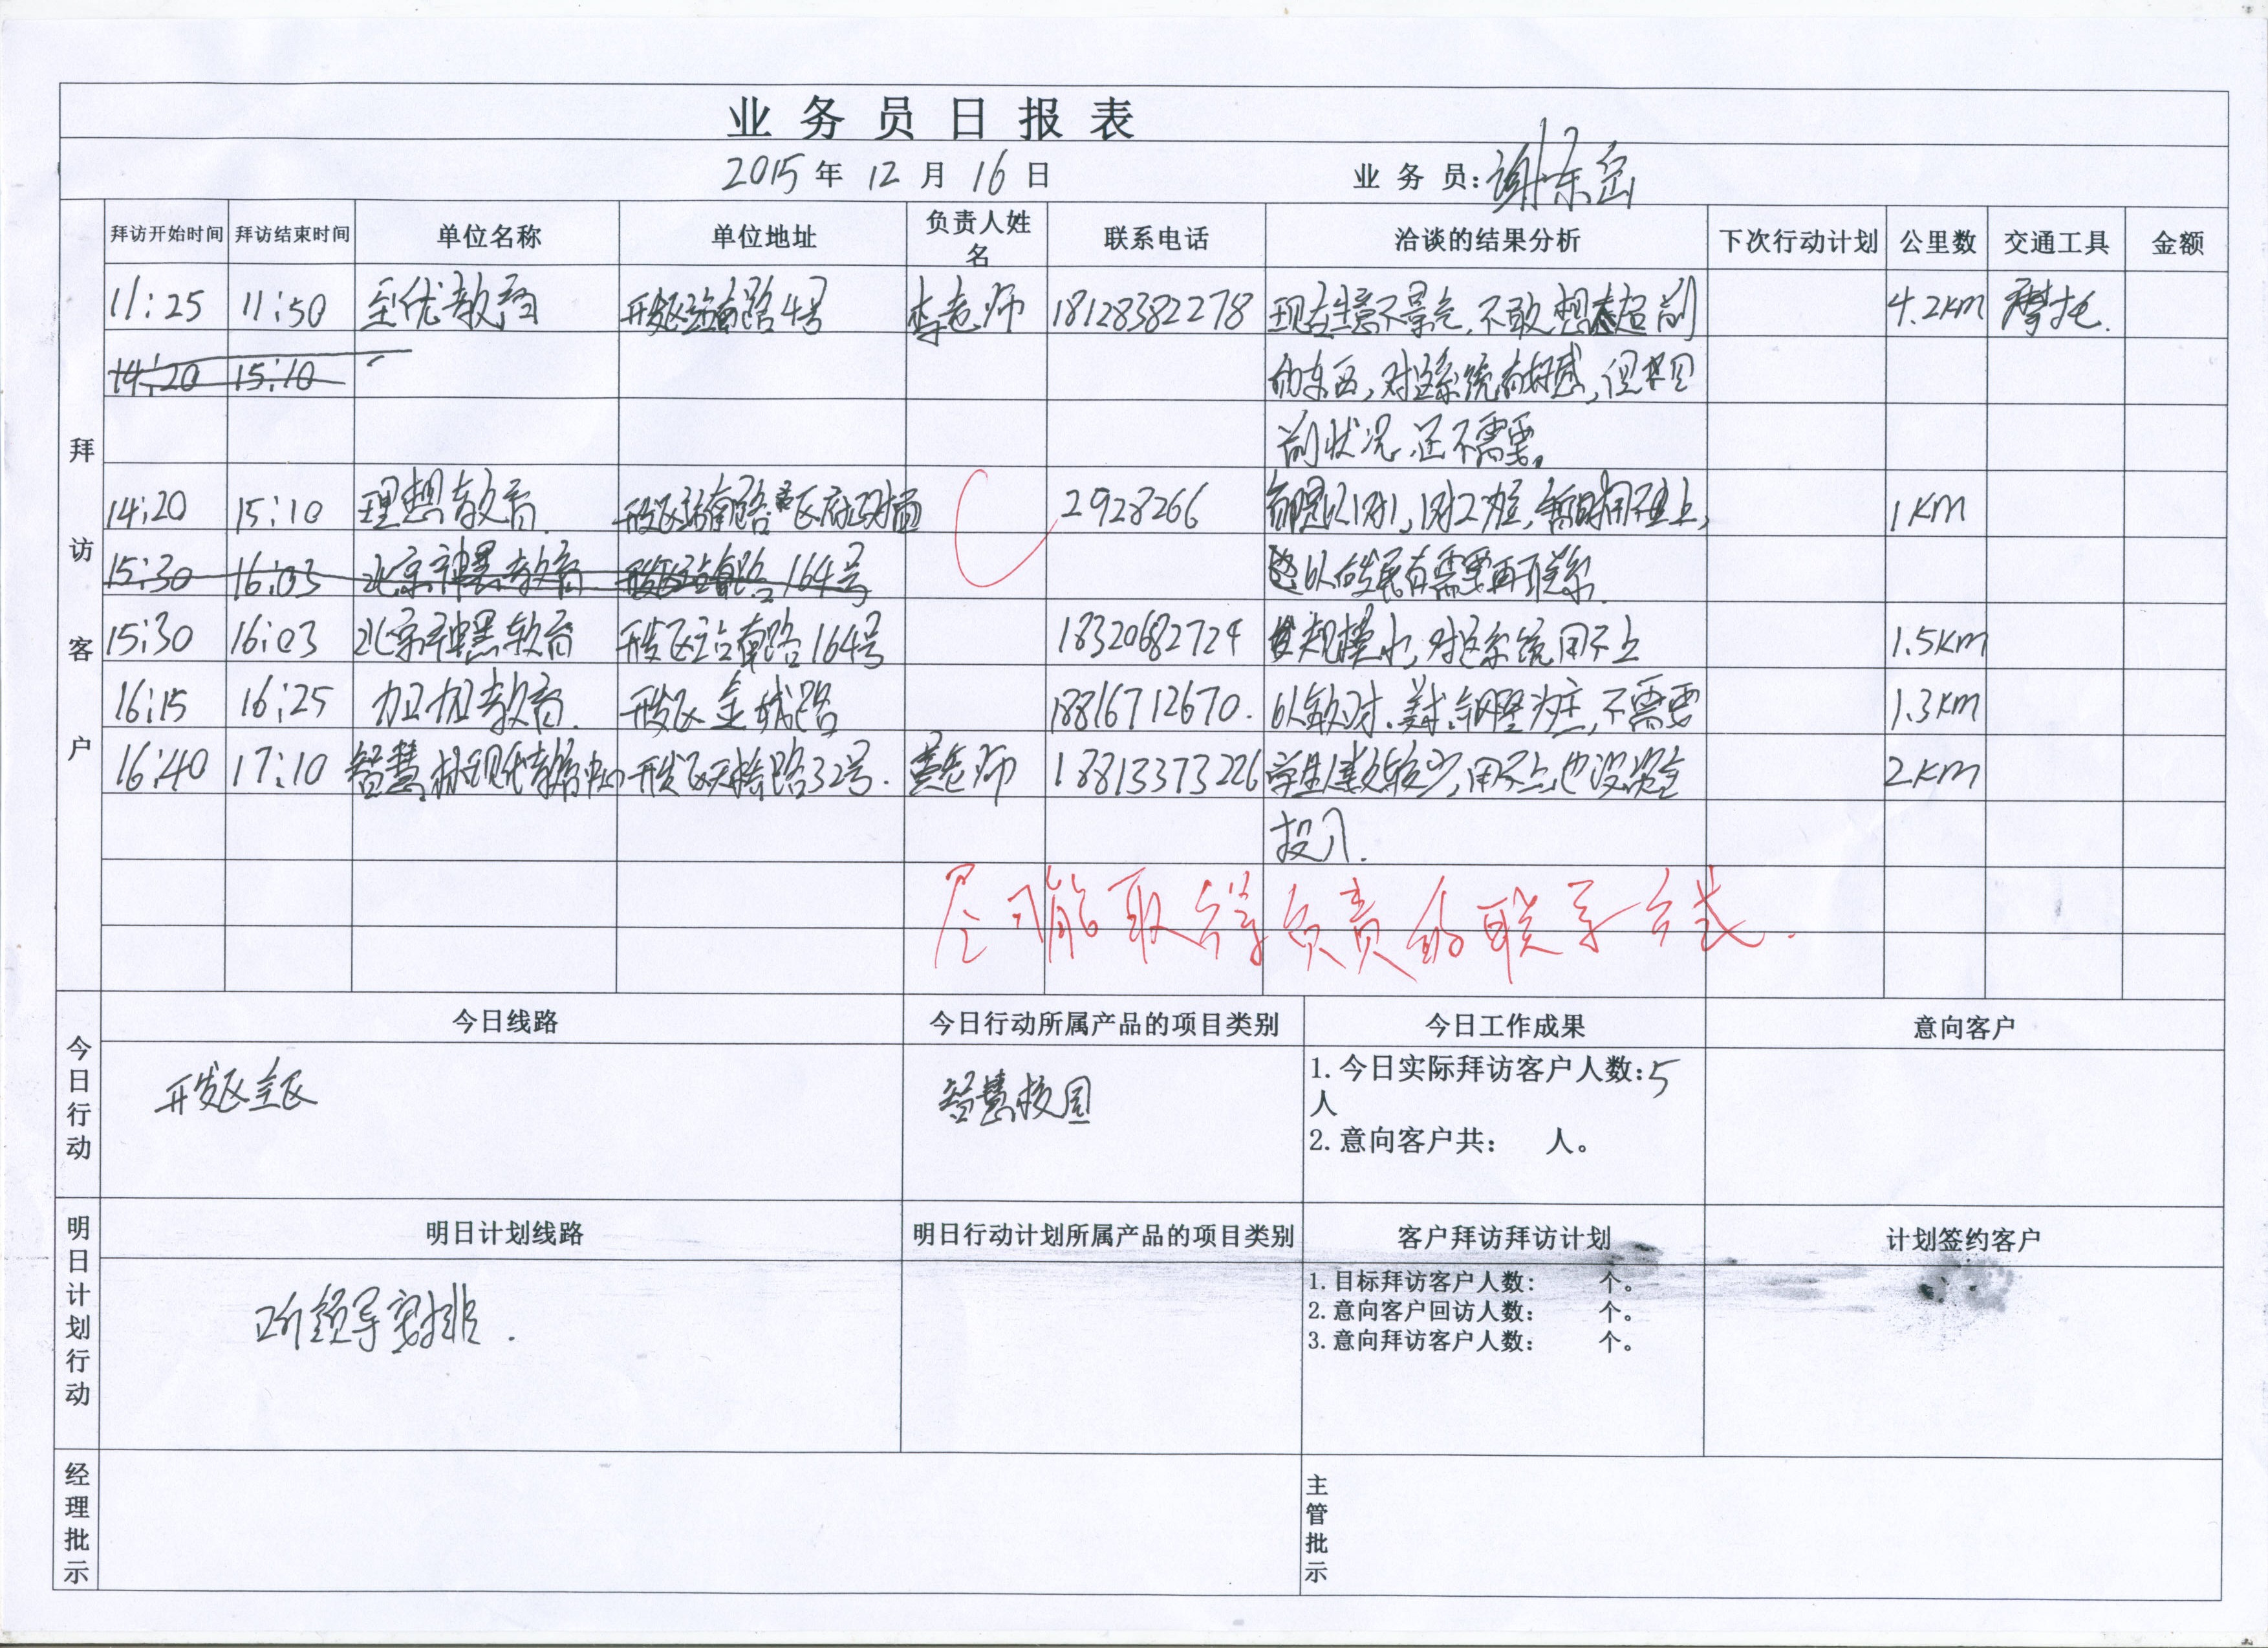 业务员日报表
2015年12月16日 业务员:谢东岳
拜访客户
拜访开始时间 拜访结束时间 单位名称 单位地址 负责人姓名 联系电话 洽谈的结果分析 下次行动计划 公里数 交通工具 金额
11:25 11:50 至优教育 开发区站南路4号 李老师 18128382278 现在生意不景气,不敢想太超前 4.2km 摩托.
14:20 15:10 的东西,对这系统有好感,但目
前状况还不需要。
14:20 15:10 理想教育. 开发区站南路 区府对面 2928266 1对1, 1km
15:30 16:03 北京神墨教育 开发区站南路164号 以后发展有需要再联系.
15:30 16:03 北京神墨教育 开发区站南路164号 18320682724 规模小,对这系统用不上 1.5km
16:15 16:25 加加教育. 开发区金城路 18816712670. 不需要 1.3km
16:40 17:10 智慧 现代教育中心 开发区 路32号. 黄老师 18813373226 学生人数较少,用不上也没资金 2km
投入.
尽可能取得负责的联系方式.
今日行动
今日线路 今日行动所属产品的项目类别 今日工作成果 意向客户
开发区全区 智慧校园 1.今日实际拜访客户人数:5
人
2.意向客户共: 人。
明日计划行动
明日计划线路 明日行动计划所属产品的项目类别 客户拜访拜访计划 计划签约客户
听领导安排. 1.目标拜访客户人数: 个。
2.意向客户回访人数: 个。
3.意向拜访客户人数: 个。
经理批示 主管批示